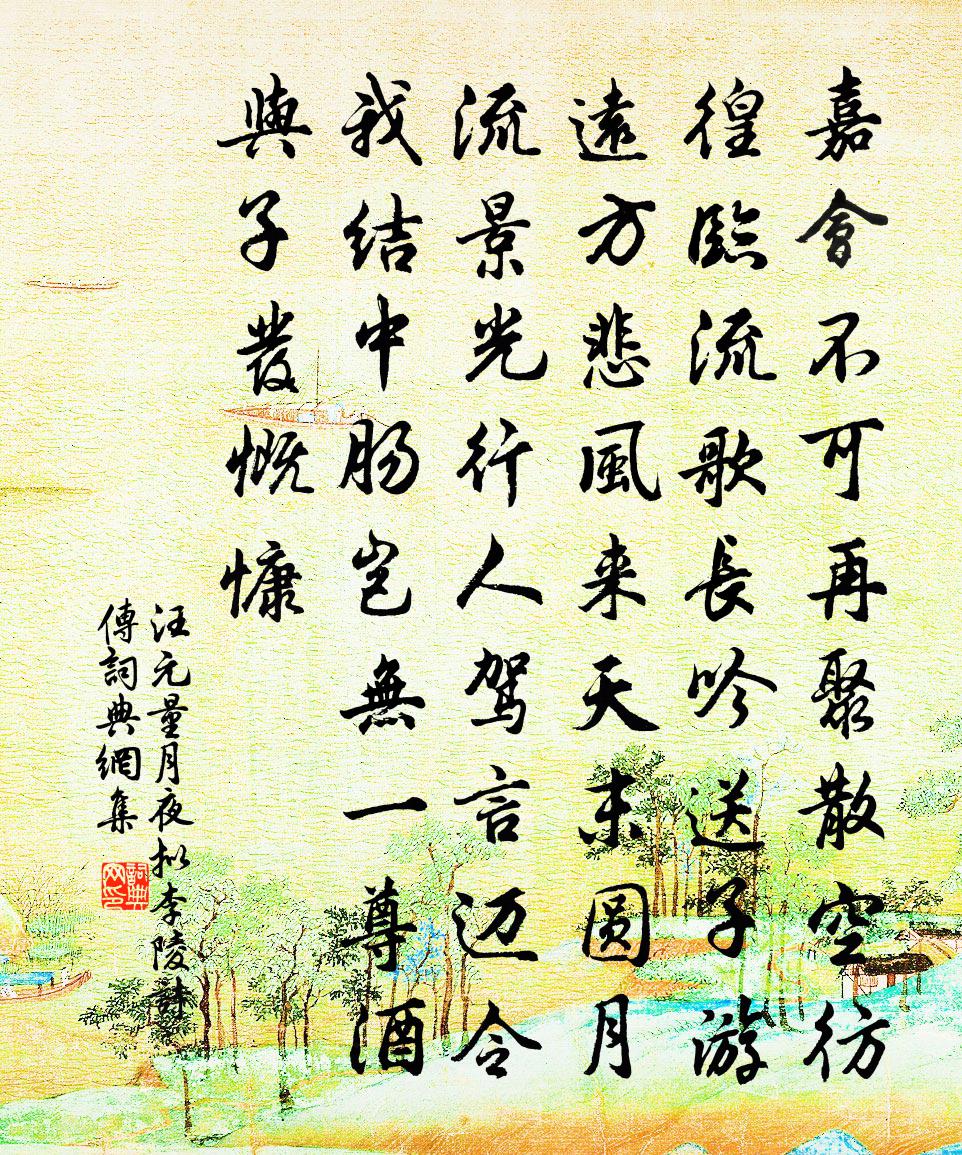 嘉會不可再聚散空彷
徨臨流歌長吟送子游
遠方悲風来天末圓月
流景光行人駕言迈令
我结中肠岂無一尊酒
與子發慨慷
汪元量月夜拟李陵詩
傳詞典網集
詞典網印